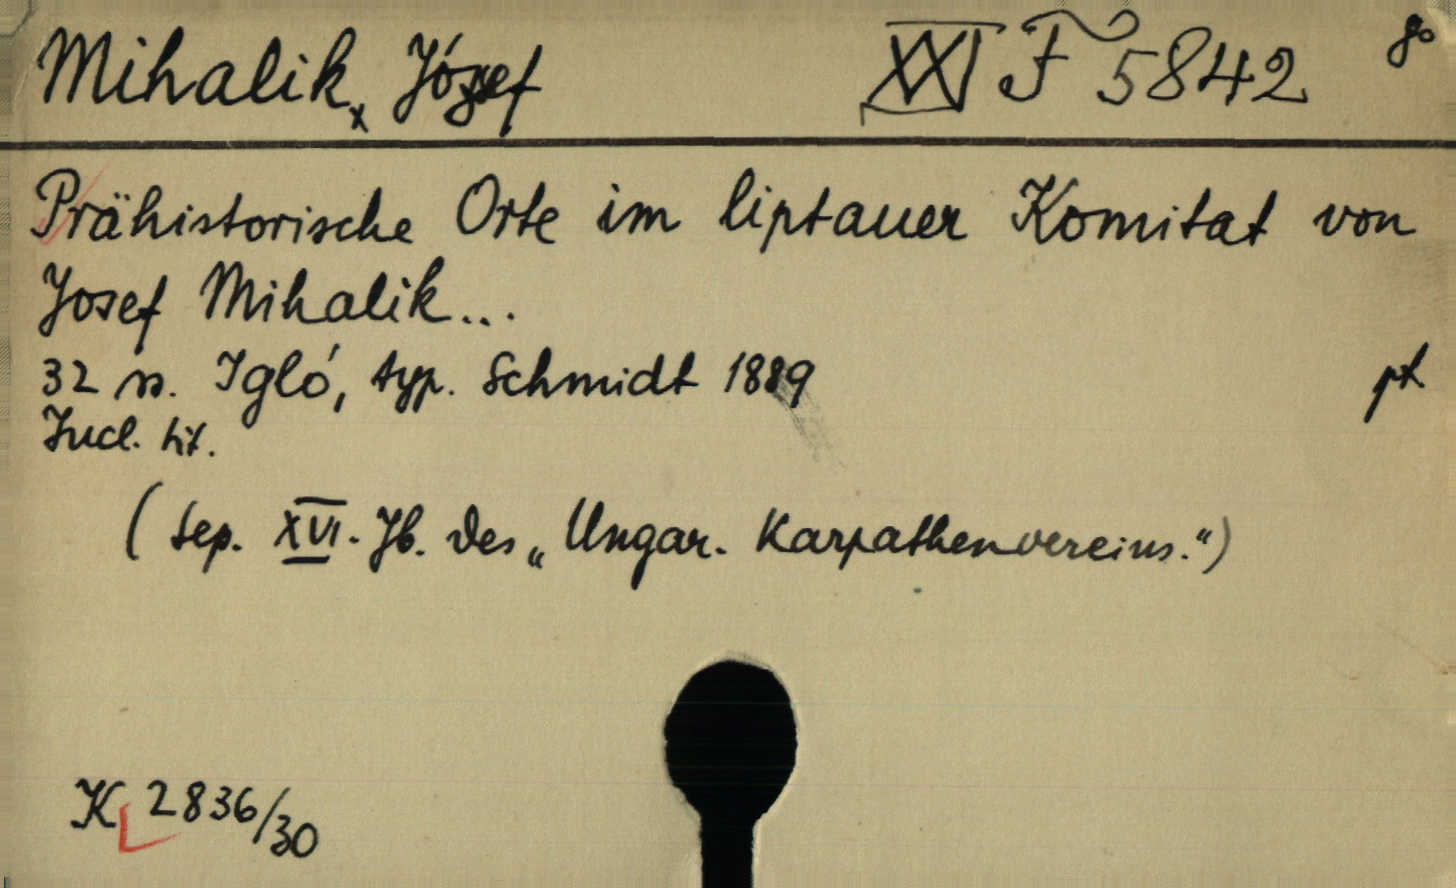 Mihalik x József XXI F 5842 8o
Prähistorische Orte im liptauer Komitat von
Josef Mihalik...
32 ss. Igló, typ. Schmidt 1889 pt
Incl. tit.
(Sep. XVI. Jb. des „Ungar. Karpathenvereins.“)
K 2836/30